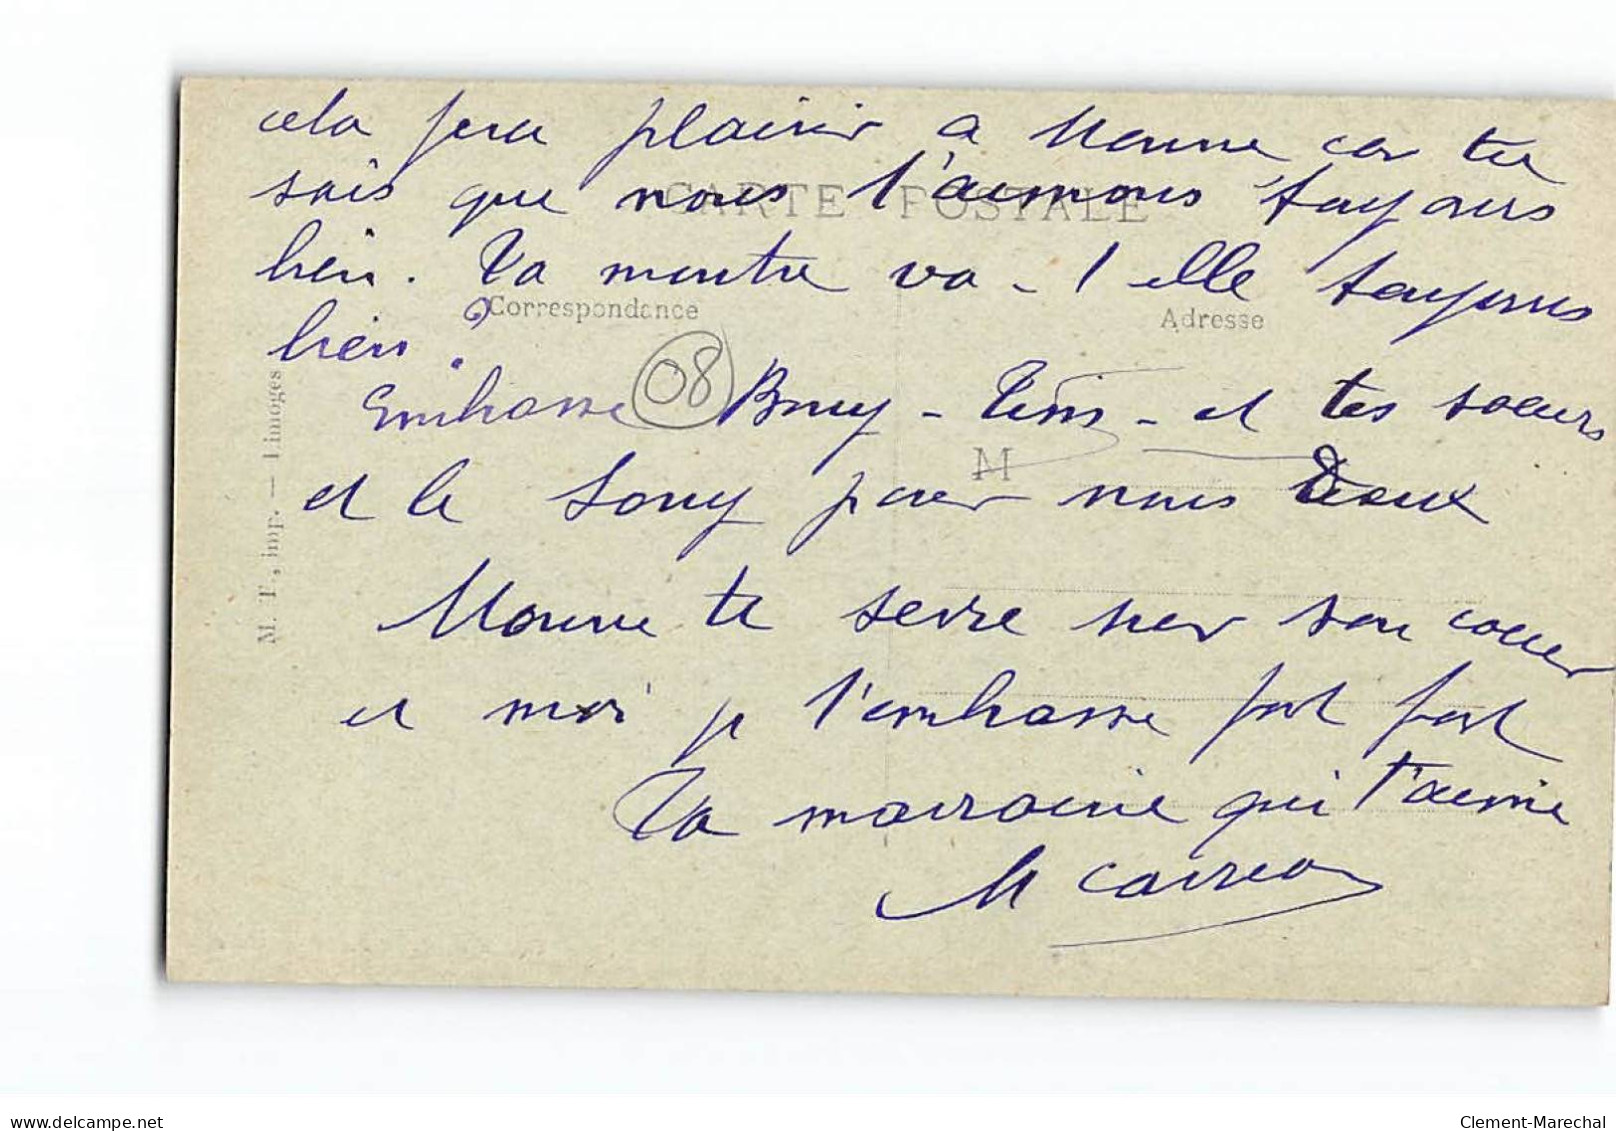 cela fera plaisir a Nonne car tu
CARTE POSTALE
sais que nous t'aimons toujours
bien. Ta montre va-t elle toujours
Correspondance
Adresse
bien ?
08
Embrasse - et tes soeurs
M
et le pour nous Deux
Nonne te serre sur son coeur
et moi je t'embrasse fort fort
Ta marraine qui t'aime
M
M. T., imp. — Limoges
delcampe.net
Clement-Marechal